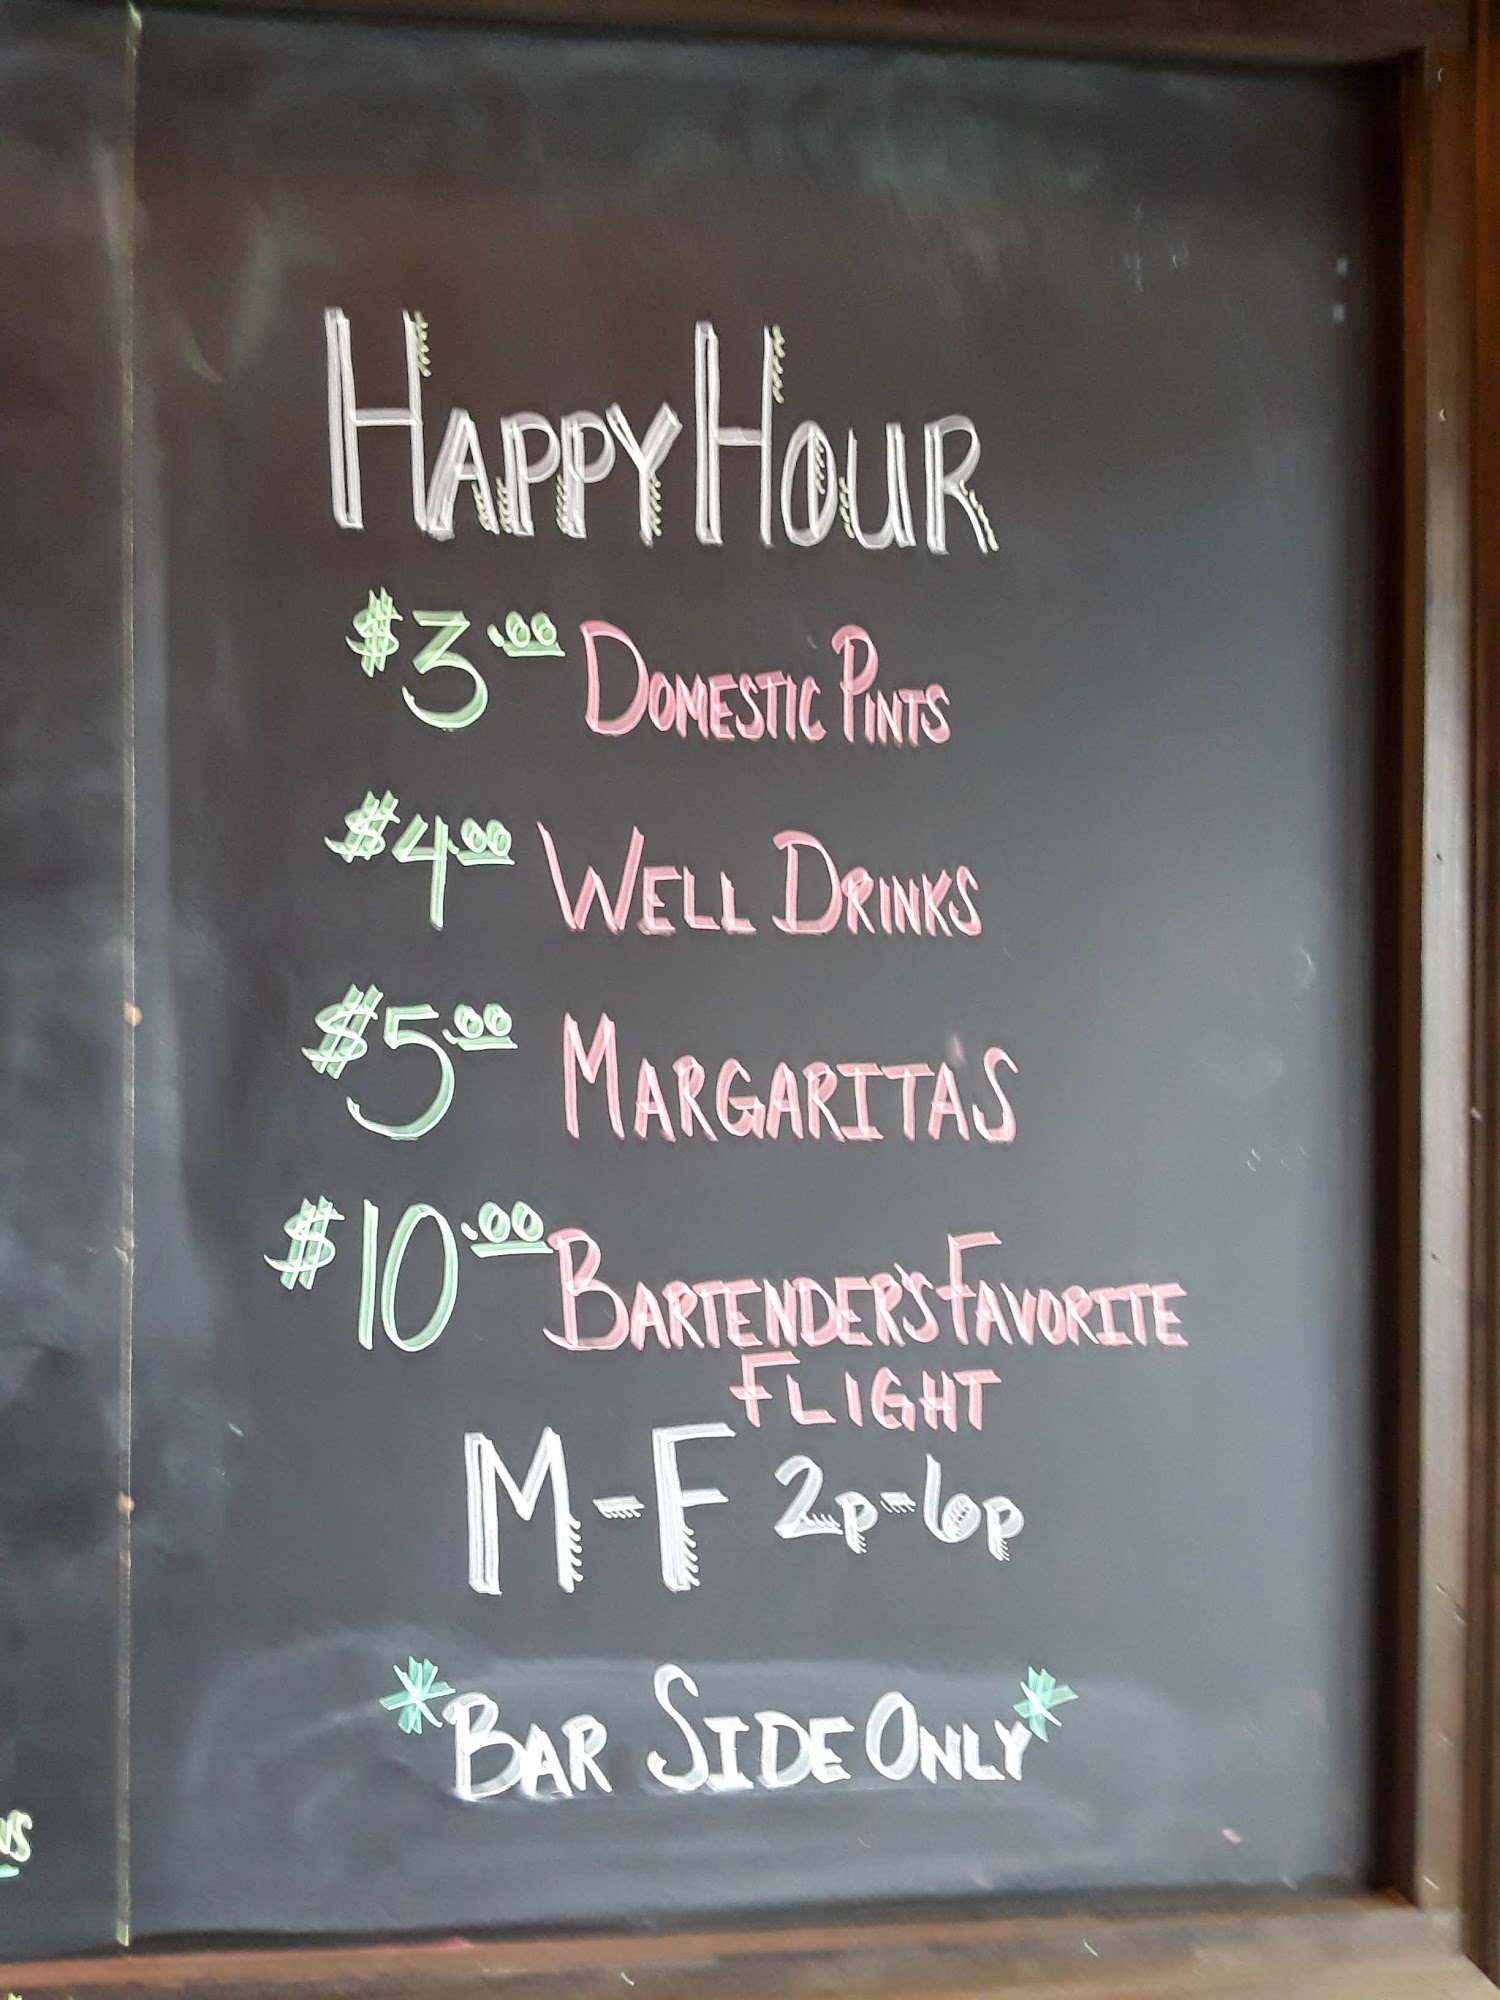 HAPPY HOUR
$3.00 DOMESTIC PINTS
$4.00 WELL DRINKS
$5.00 MARGARITA'S
$10.00 BARTENDER'S FAVORITE
FLIGHT
M-F 2p-6p
*BAR SIDE ONLY*